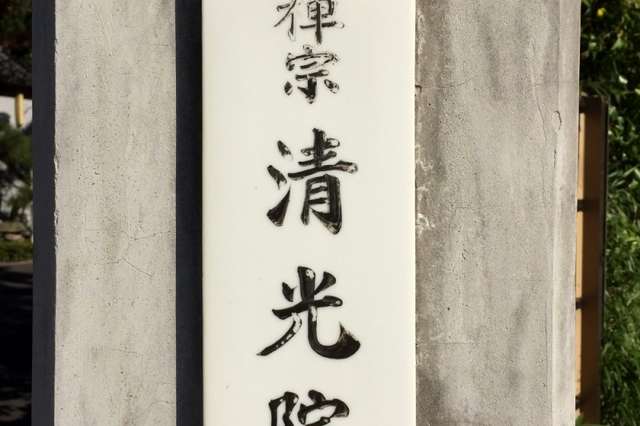 禅宗清光院